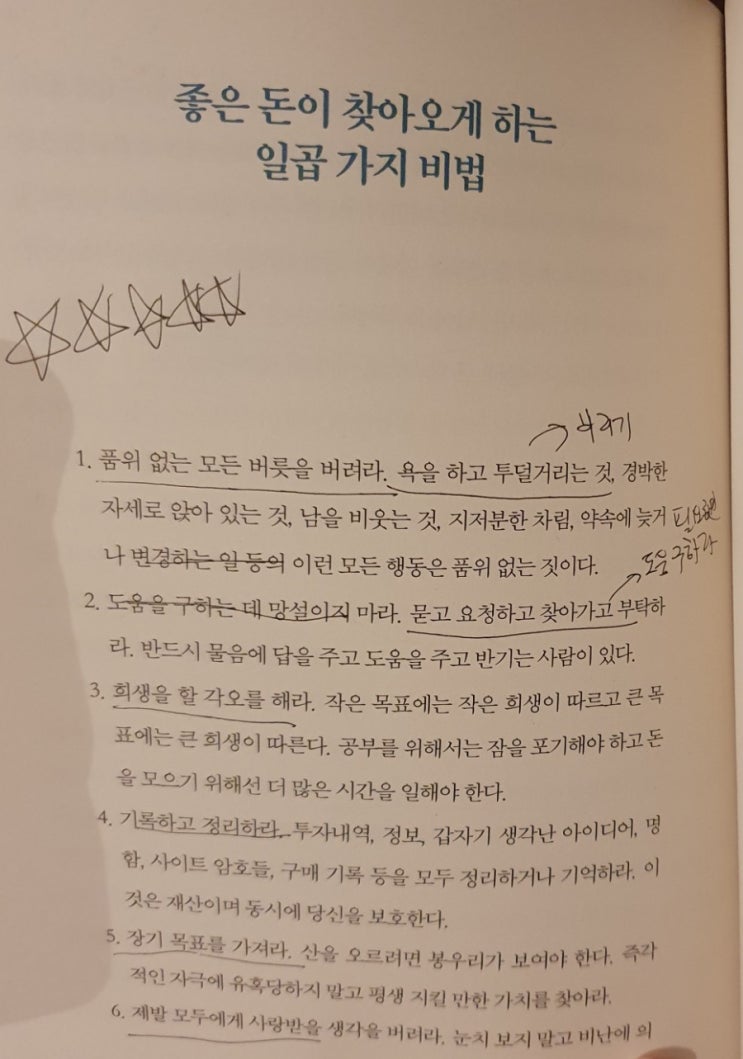 좋은 돈이 찾아오게 하는
일곱 가지 비법
버리기
1. 품위 없는 모든 버릇을 버려라. 욕을 하고 투덜거리는 것, 경박한
자세로 앉아 있는 것, 남을 비웃는 것, 지저분한 차림, 약속에 늦거
나 변경하는 일 등의 이런 모든 행동은 품위 없는 짓이다.
도움 구하라
2. 도움을 구하는 데 망설이지 마라. 묻고 요청하고 찾아가고 부탁하
라. 반드시 물음에 답을 주고 도움을 주고 반기는 사람이 있다.
3. 희생을 할 각오를 해라. 작은 목표에는 작은 희생이 따르고 큰 목
표에는 큰 희생이 따른다. 공부를 위해서는 잠을 포기해야 하고 돈
을 모으기 위해선 더 많은 시간을 일해야 한다.
4. 기록하고 정리하라. 투자내역, 정보, 갑자기 생각난 아이디어, 명
함, 사이트 암호들, 구매 기록 등을 모두 정리하거나 기억하라. 이
것은 재산이며 동시에 당신을 보호한다.
5. 장기 목표를 가져라. 산을 오르려면 봉우리가 보여야 한다. 즉각
적인 자극에 유혹당하지 말고 평생 지킬 만한 가치를 찾아라.
6. 제발 모두에게 사랑받을 생각을 버려라. 눈치 보지 말고 비난에 의